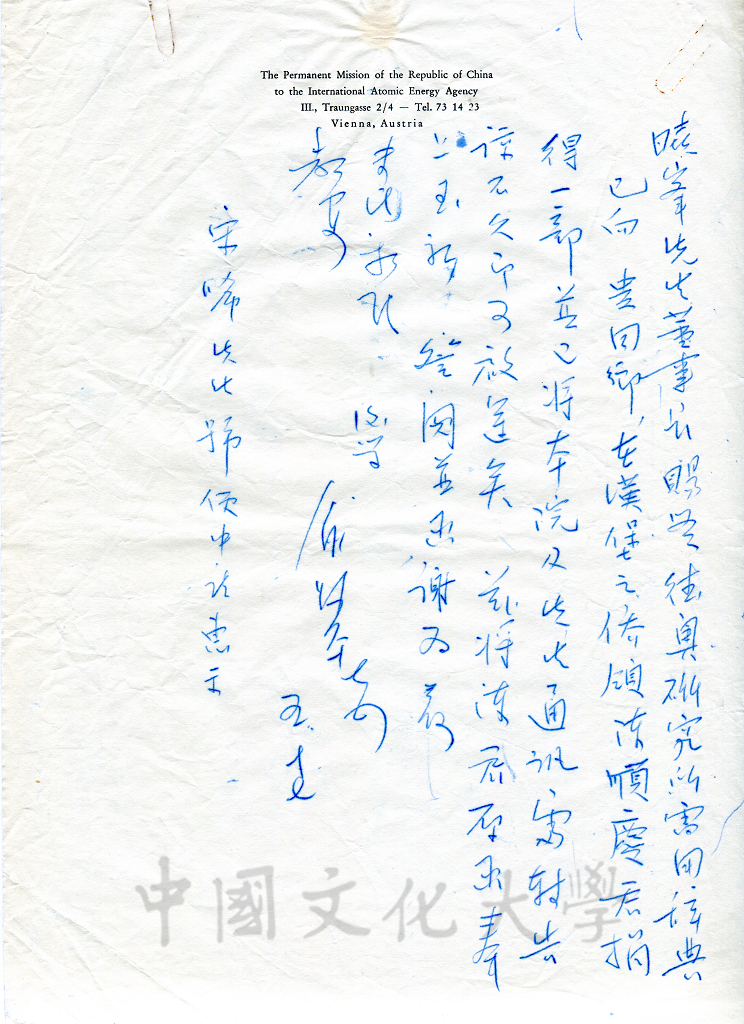 The Permanent Mission of the Republic of China
to the International Atomic Energy Agency
III., Traungasse 2/4 — Tel. 73 14 23
Vienna, Austria
曉峯先生董事長賜鑒德奧研究所需用辭典
已向 貴同鄉在漢堡之僑領陳順慶君捐
得一部並已將本院及先生通訊處轉告
諒不久即可啟運矣 茲將陳君原函奉
上至祈 詧閱並函謝為荷
專此敬頌
教安
後學
五
宋晞先生號便中請惠示
中國文化大學